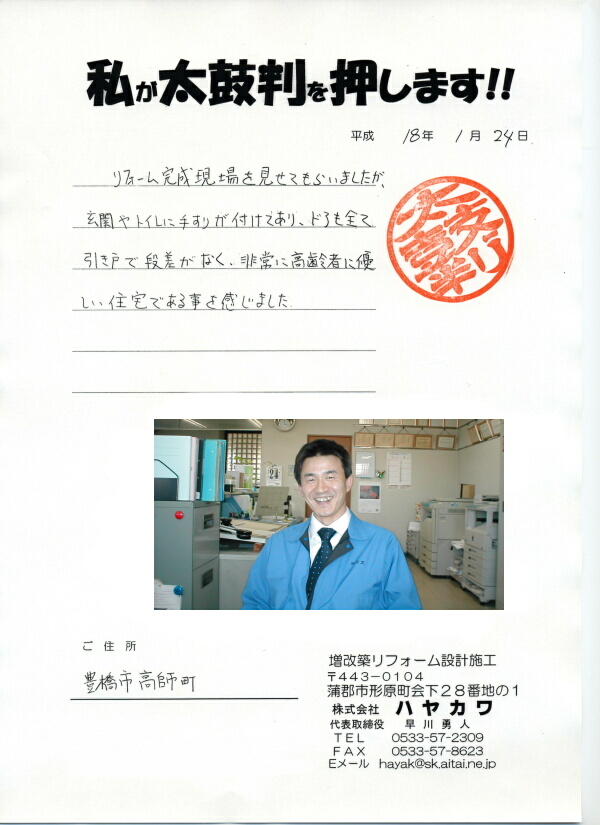 私が太鼓判を押します!!
平成 18年 1月 24日
リフォーム完成現場を見せてもらいましたが、
玄関やトイレに手すりが付けてあり、ドアも全て
引き戸で段差がなく、非常に高齢者に優
しい住宅である事を感じました。
ご住所
豊橋市高師町
増改築リフォーム設計施工
〒443-0104
蒲郡市形原町会下28番地の1
株式会社 ハヤカワ
代表取締役 早川勇人
TEL 0533-57-2309
FAX 0533-57-8623
Eメール hayak@sk.aitai.ne.jp